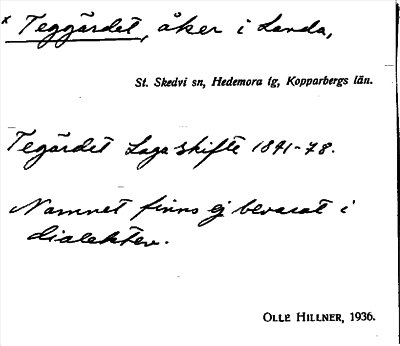 x Teggärdet, åker i Landa,
St. Skedvi sn, Hedemora tg, Kopparbergs län.
Tegärdet Laga skifte 1841-78.
Namnet finns ej bevarat i
dialekten.
OLLE HILLNER, 1936.